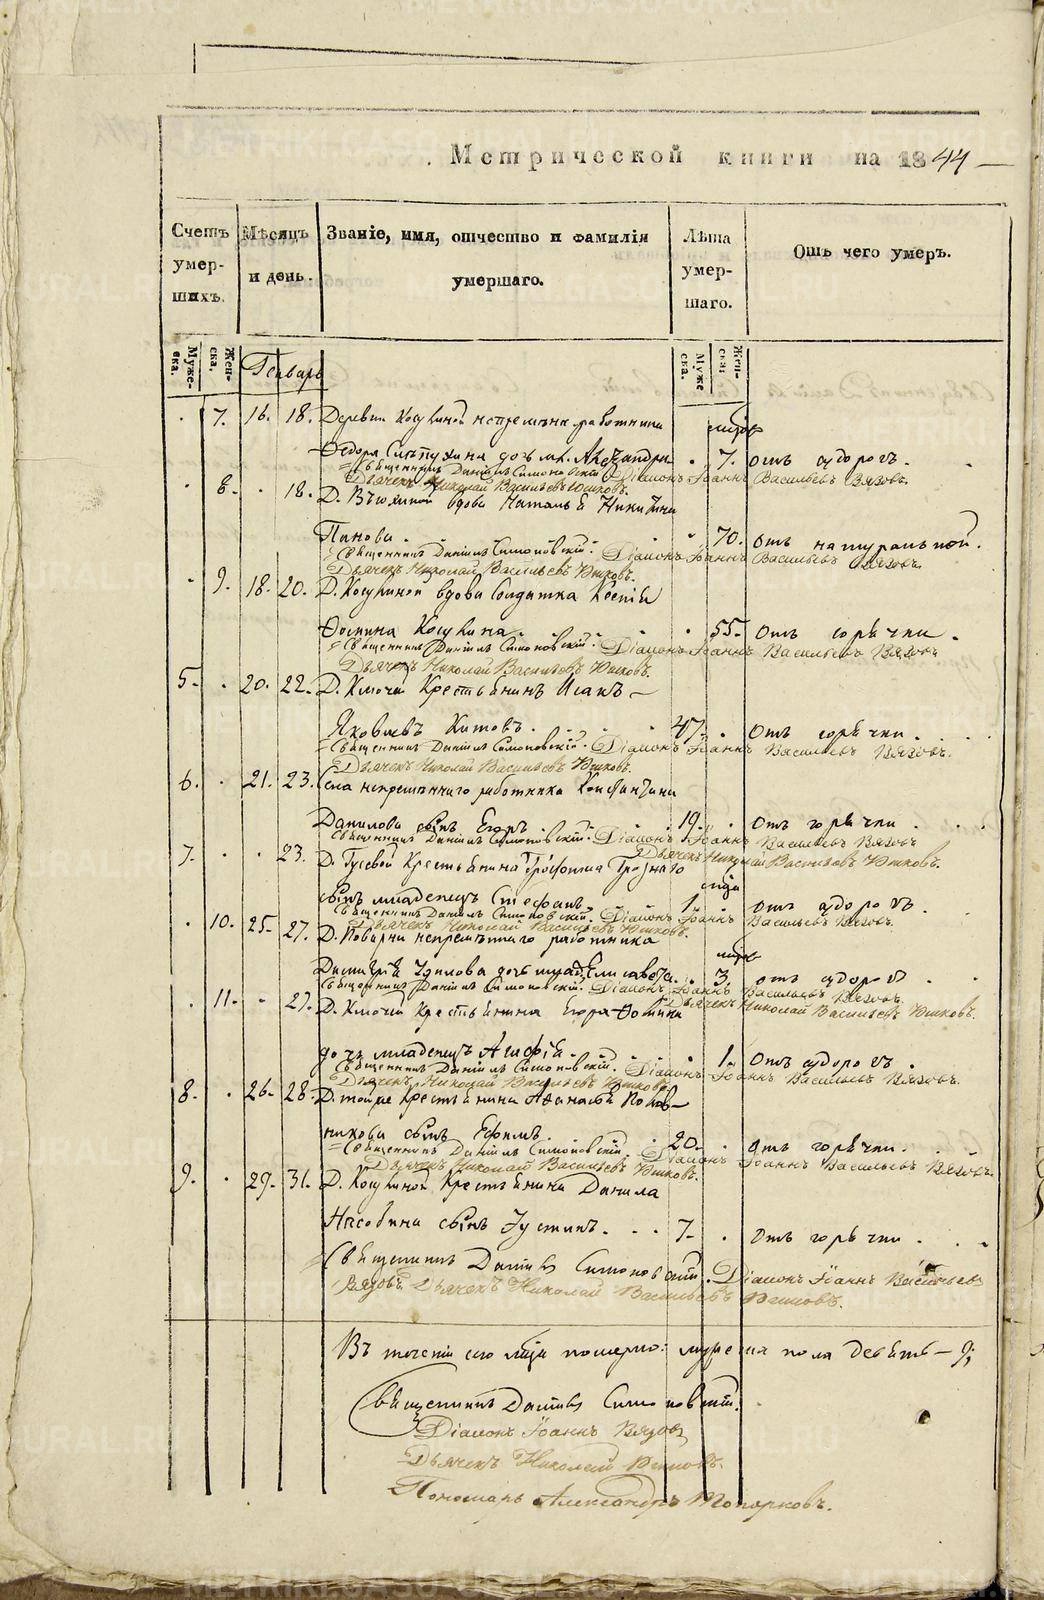 Метрической книги на 1844
Счетъ умер-шихъ.
Мѣсяцъ и день.
Званіе, имя, отчество и фамилія умершаго.
Лѣта умер-шаго.
Отъ чего умеръ.
Муже-ска.
Жен-ска.
Генварь
Муже ска.
Жен-ска:
7. 16. 18. Деревни Косулиной непремѣнн. работника
Ѳедора дочь мл. Александра 7. отъ удоровъ.
Священникъ Даніилъ Симоновскій Діаконъ Іоаннъ Васильевъ Вязовъ.
Дьячекъ Николай Васильевъ Юшковъ.
8. 18. Д. вдова Наталья Никитина
Панова. 70. отъ натуральной.
Священникъ Даніилъ Симоновскій. Діаконъ Іоаннъ Васильевъ Вязовъ.
Дьячекъ Николай Васильевъ Юшковъ.
9. 18. 20. Д. Косулиной вдова Солдатка Ксенія
Фомина Косулина. 55. отъ горячки.
Священникъ Даніилъ Симоновскій. Діаконъ Іоаннъ Васильевъ Вязовъ
Дьячекъ Николай Васильевъ Юшковъ.
5. 20. 22. Д. Ключей Крестьянинъ Исакъ
Яковлевъ Китовъ. 47. отъ горячки.
Священникъ Даніилъ Симоновскій. Діаконъ Іоаннъ Васильевъ Вязовъ.
Дьячекъ Николай Васильевъ Юшковъ.
6. 21. 23. Села непремѣннаго работника Константина
Данилова сынъ Егоръ. 19. отъ горячки
Священникъ Даніилъ Симоновскій. Діаконъ Іоаннъ Васильевъ Вязовъ
Дьячекъ Николай Васильевъ Юшковъ.
7. 23. Д. Гусевой Крестьянина Трофима
сынъ младенецъ Стефанъ. 1. отъ удоровъ.
Священникъ Даніилъ Симоновскій. Діаконъ Іоаннъ Васильевъ Вязовъ.
Дьячекъ Николай Васильевъ Юшковъ.
10. 25. 27. Д. Поварни непремѣннаго работника
дочь млад. Елисавета. 3. отъ удоровъ
Священникъ Даніилъ Симоновскій. Діаконъ Іоаннъ Васильевъ Вязовъ.
Дьячекъ Николай Васильевъ Юшковъ.
11. 27. Д. Ключей Крестьянина Егора Фомина
дочь младенецъ Агафія. 1. отъ удоровъ.
Священникъ Даніилъ Симоновскій. Діаконъ Іоаннъ Васильевъ Вязовъ.
Дьячекъ Николай Васильевъ Юшковъ.
8. 26. 28. Д. тойже Крестьянина Афанасья
сынъ Ефимъ. 20. отъ горячки.
Священникъ Даніилъ Симоновскій. Діаконъ Іоаннъ Васильевъ Вязовъ.
Дьячекъ Николай Васильевъ Юшковъ.
9. 29. 31. Д. Косулиной Крестьянина Данила
сынъ Іустинъ. 7. отъ горячки
Священникъ Даніилъ Симоновскій. Діаконъ Іоаннъ Васильевъ
Вязовъ. Дьячекъ Николай Васильевъ Юшковъ.
Въ теченіи сего м-ца померло: мужеска пола девять — 9;
Священникъ Даніилъ Симоновскій.
Діаконъ Іоаннъ Вязовъ
Дьячекъ Николай Юшковъ.
Пономарь Александръ Топорковъ.